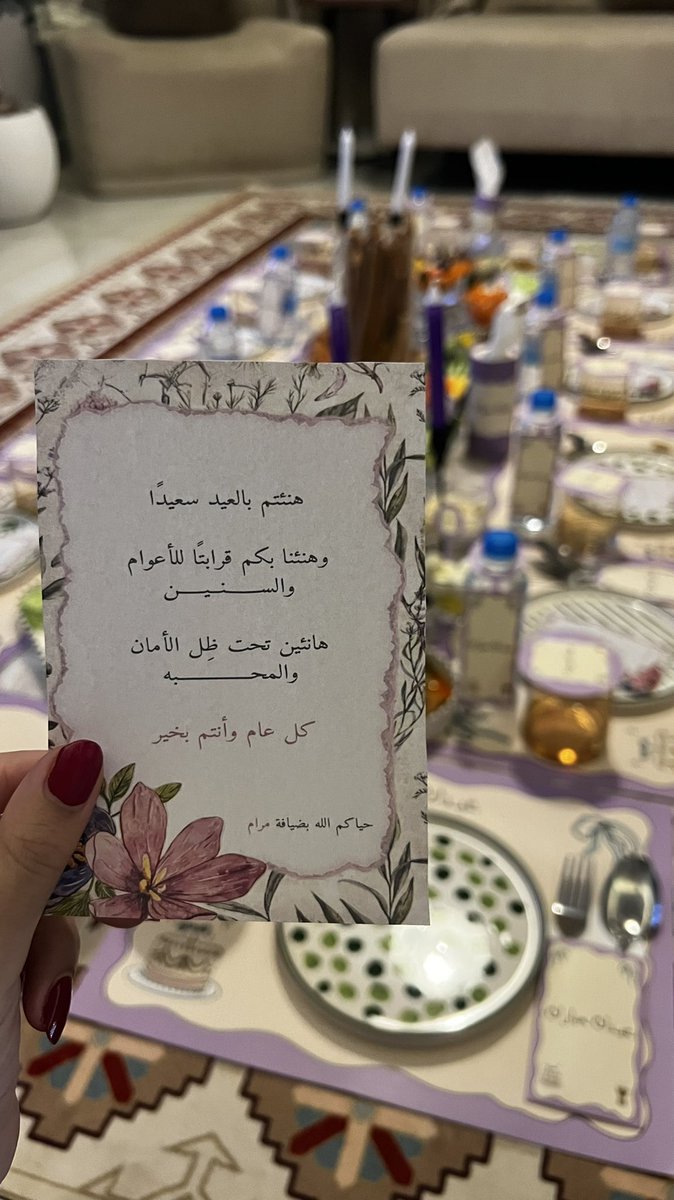 هنئتم بالعيد سعيدًا
وهنئنا بكم قرابتًا للأعوام
والسنين
هانئين تحت ظِل الأمان
والمحبه
كل عام وأنتم بخير
حياكم الله بضيافة مرام